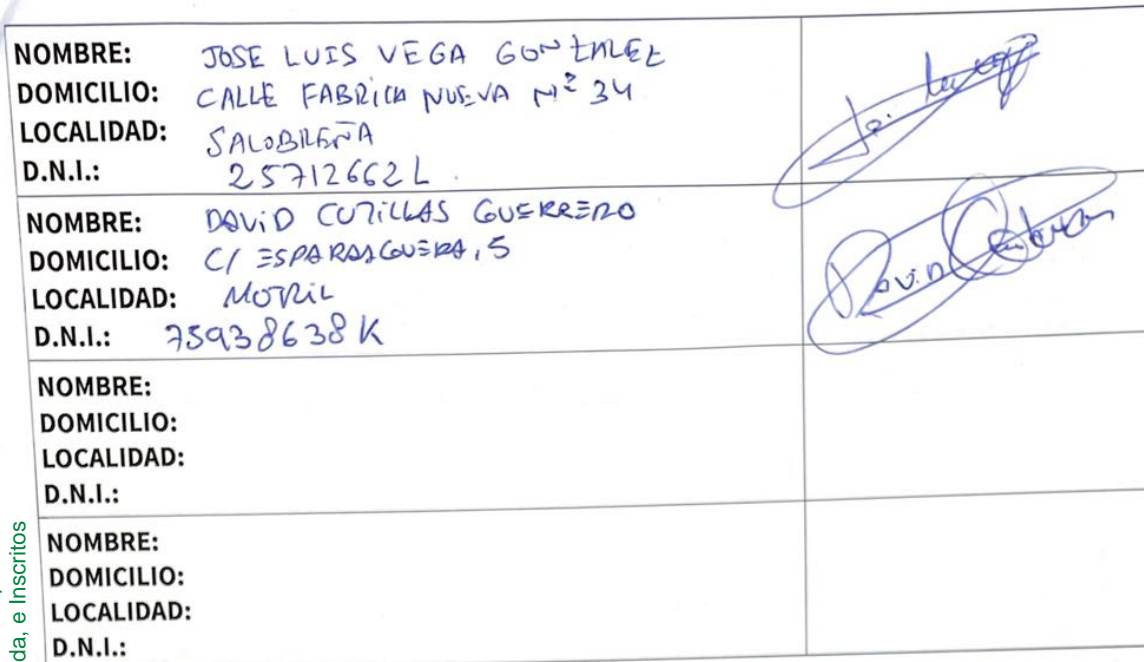 NOMBRE: JOSE LUIS VEGA GONZALEZ
DOMICILIO: CALLE FABRICA NUEVA Nº 34
LOCALIDAD: SALOBREÑA
D.N.I.: 25712662L
NOMBRE: DAVID CUTILLAS GUERRERO
DOMICILIO: C/ ESPARRAGUERA, 5
LOCALIDAD: MOTRIL
D.N.I.: 75938638K
NOMBRE:
DOMICILIO:
LOCALIDAD:
D.N.I.:
NOMBRE:
DOMICILIO:
LOCALIDAD:
D.N.I.:
da, e Inscritos